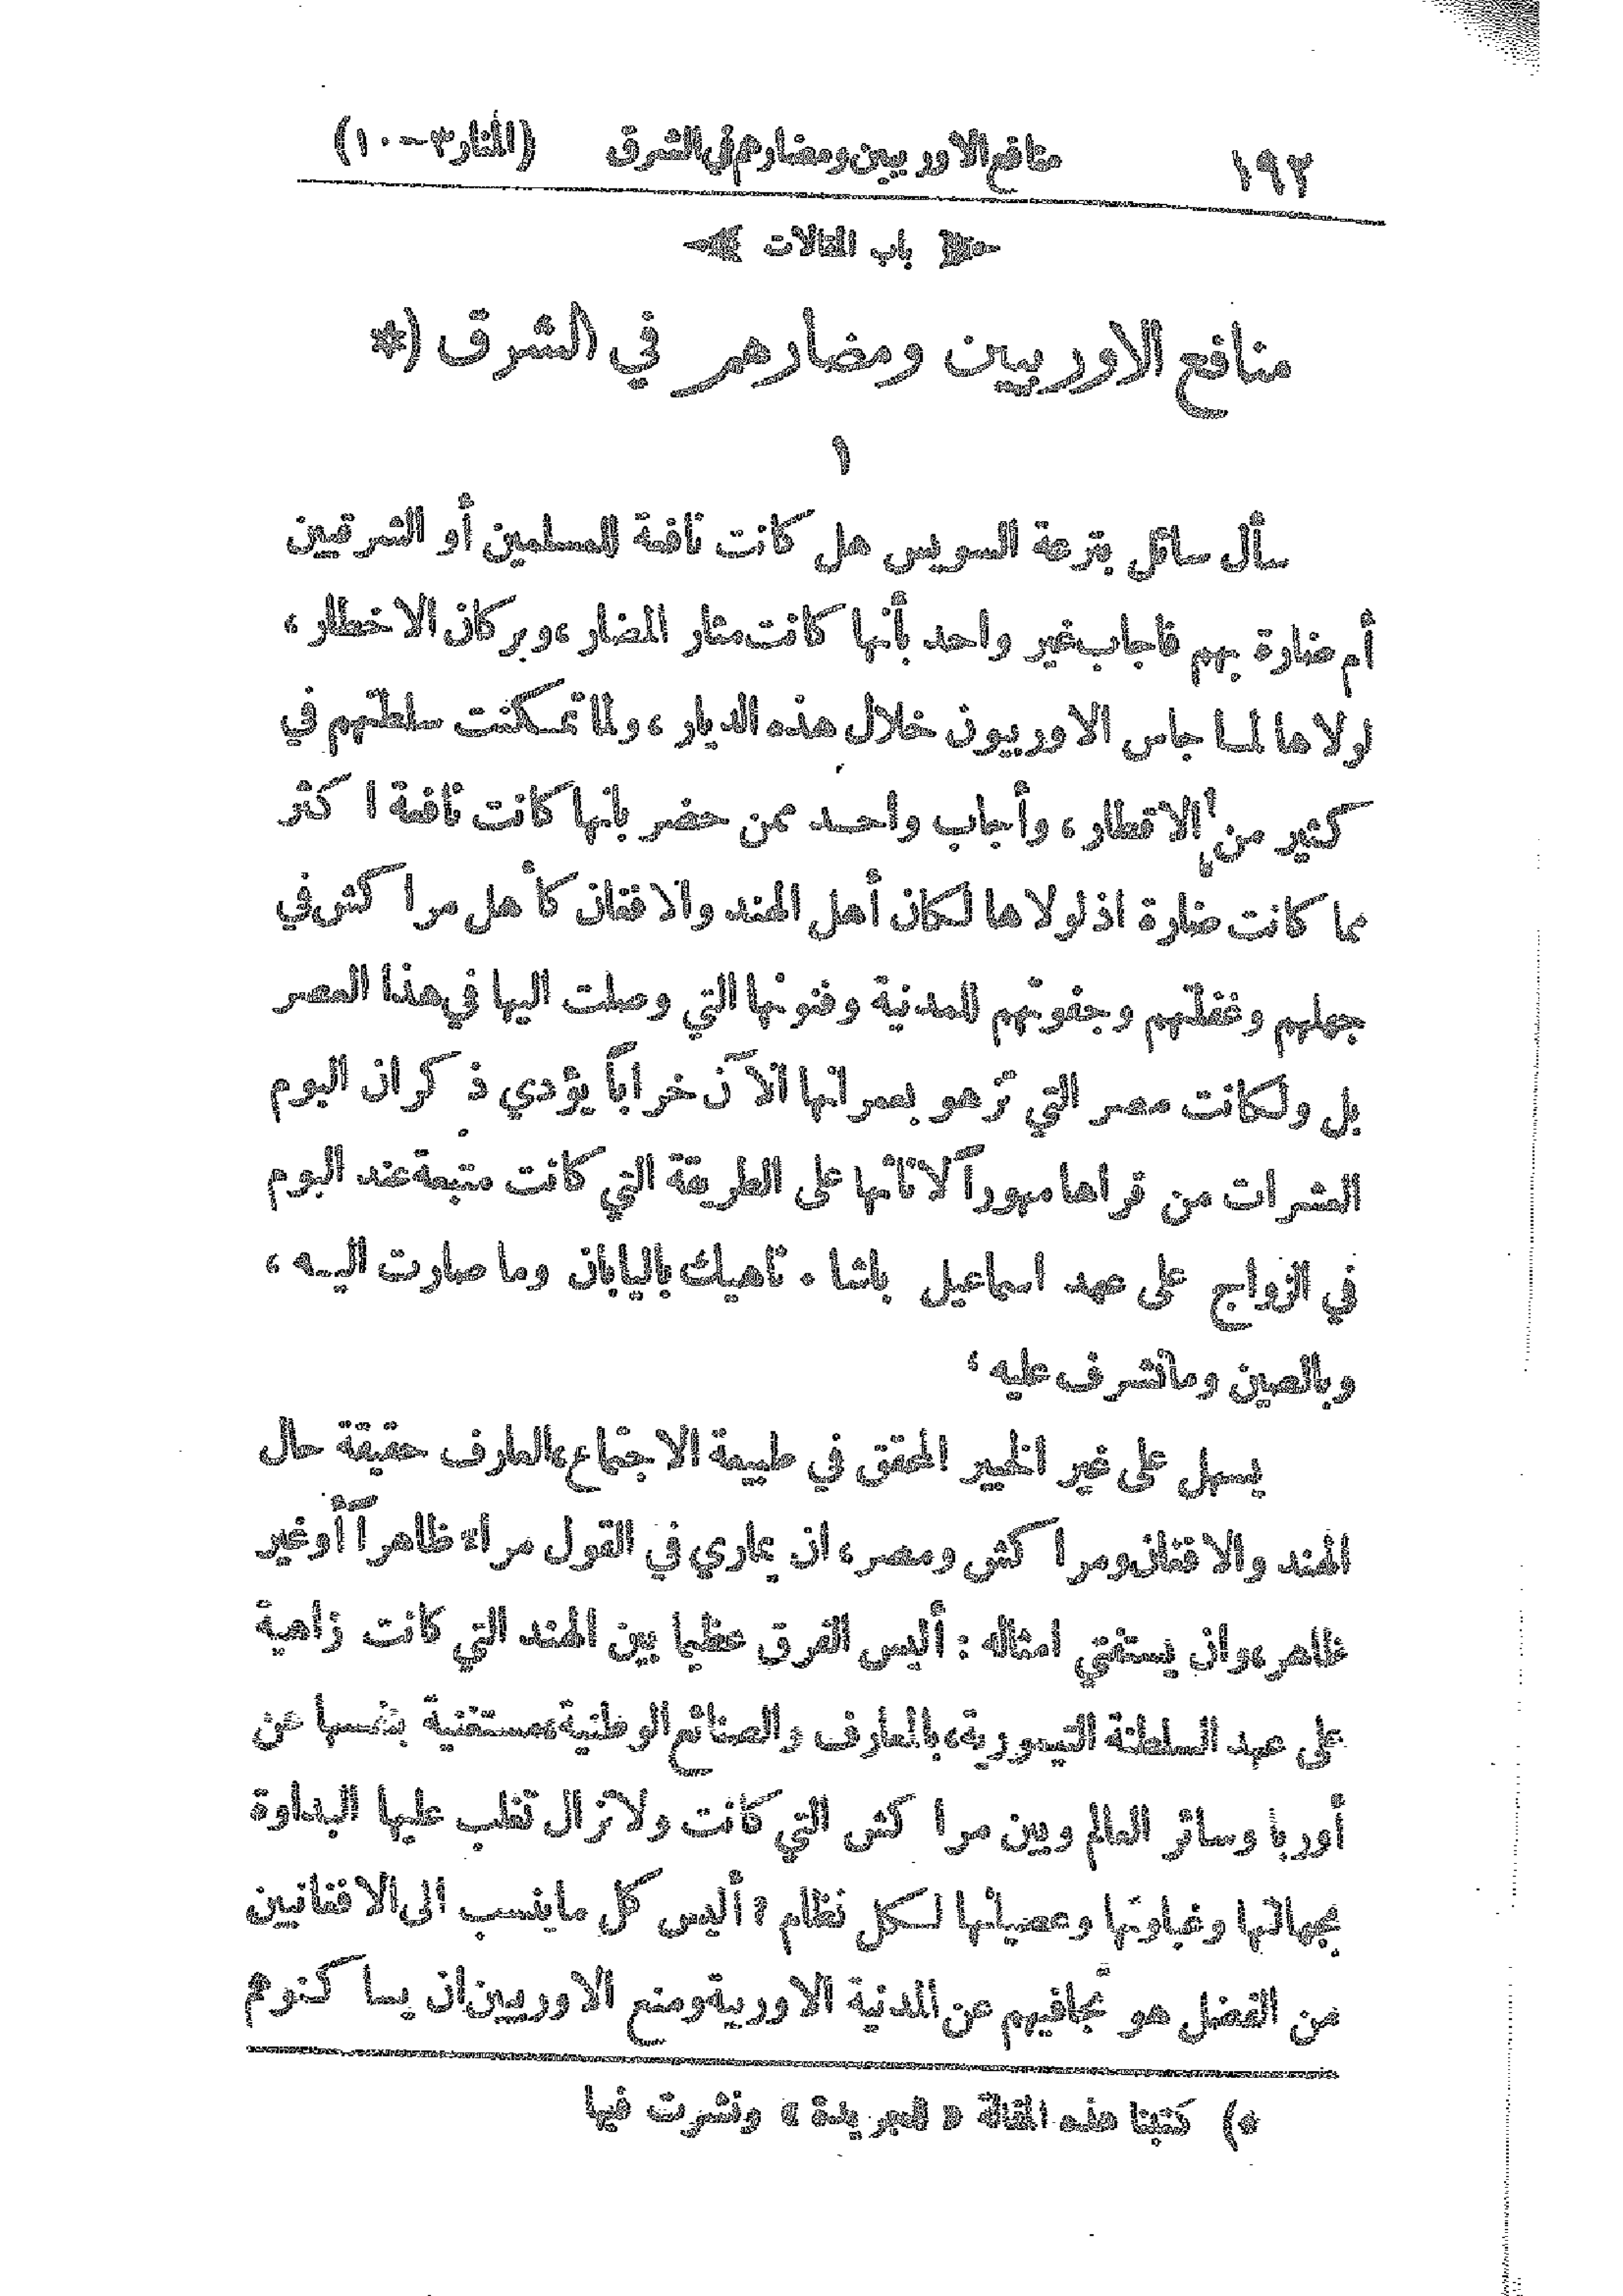 ١٩٢ منافع الاوربيين ومضارهم في الشرق (المنار ٣ــ ١٠)
باب المقالات
منافع الاوربيين ومضارهم في الشرق (*
١
سأل سائل بترعة السويس هل كانت نافعة للمسلمين أو الشرقيين
أم ضارة بهم فاجاب غير واحد بأنها كانت مثار المضار، وبركان الاخطار،
لولاها لما جاس الاوربيون خلال هذه الديار، ولما تمكنت سلطتهم في
كثير من الاقطار، وأجاب واحد ممن حضر بانها كانت نافعة اكثر
مما كانت ضارة اذ لولاها لكان أهل الهند والافغان كأهل مراكش في
جهلهم وغفلتهم وجفوتهم للمدنية وفنونها التي وصلت اليها في هذا العصر
بل ولكانت مصر التي تزهو بعمرانها الآن خراباً يؤدي ذكران البوم
العشرات من قراها مهوراً لاناثها على الطريقة التي كانت متبعة عند البوم
في الزواج على عهد اسماعيل باشا. ناهيك باليابان وما صارت اليه،
وبالصين وما تشرف عليه،
يسهل على غير الخبير المحقق في طبيعة الاجتماع، العارف حقيقة حال
الهند والافغان ومراكش ومصر، ان يماري في القول مراء ظاهراً أو غير
ظاهر، وان يستفتي امثاله: أليس الفرق عظيما بين الهند التي كانت زاهية
على عهد السلطنة التيمورية، بالمعارف والصنائع الوطنية، مستغنية بنفسها عن
أوربا وسائر العالم وبين مراكش التي كانت ولا تزال تغلب عليها البداوة
بجهالتها وغباوتها وعصيانها لكل نظام؟ أليس كل ما ينسب الى الافغانيين
من الفضل هو تجافيهم عن المدنية الاوربية ومنع الاوربيين ان يساكنوهم
*) كتبنا هذه المقالة «للجريدة» ونشرت فيها